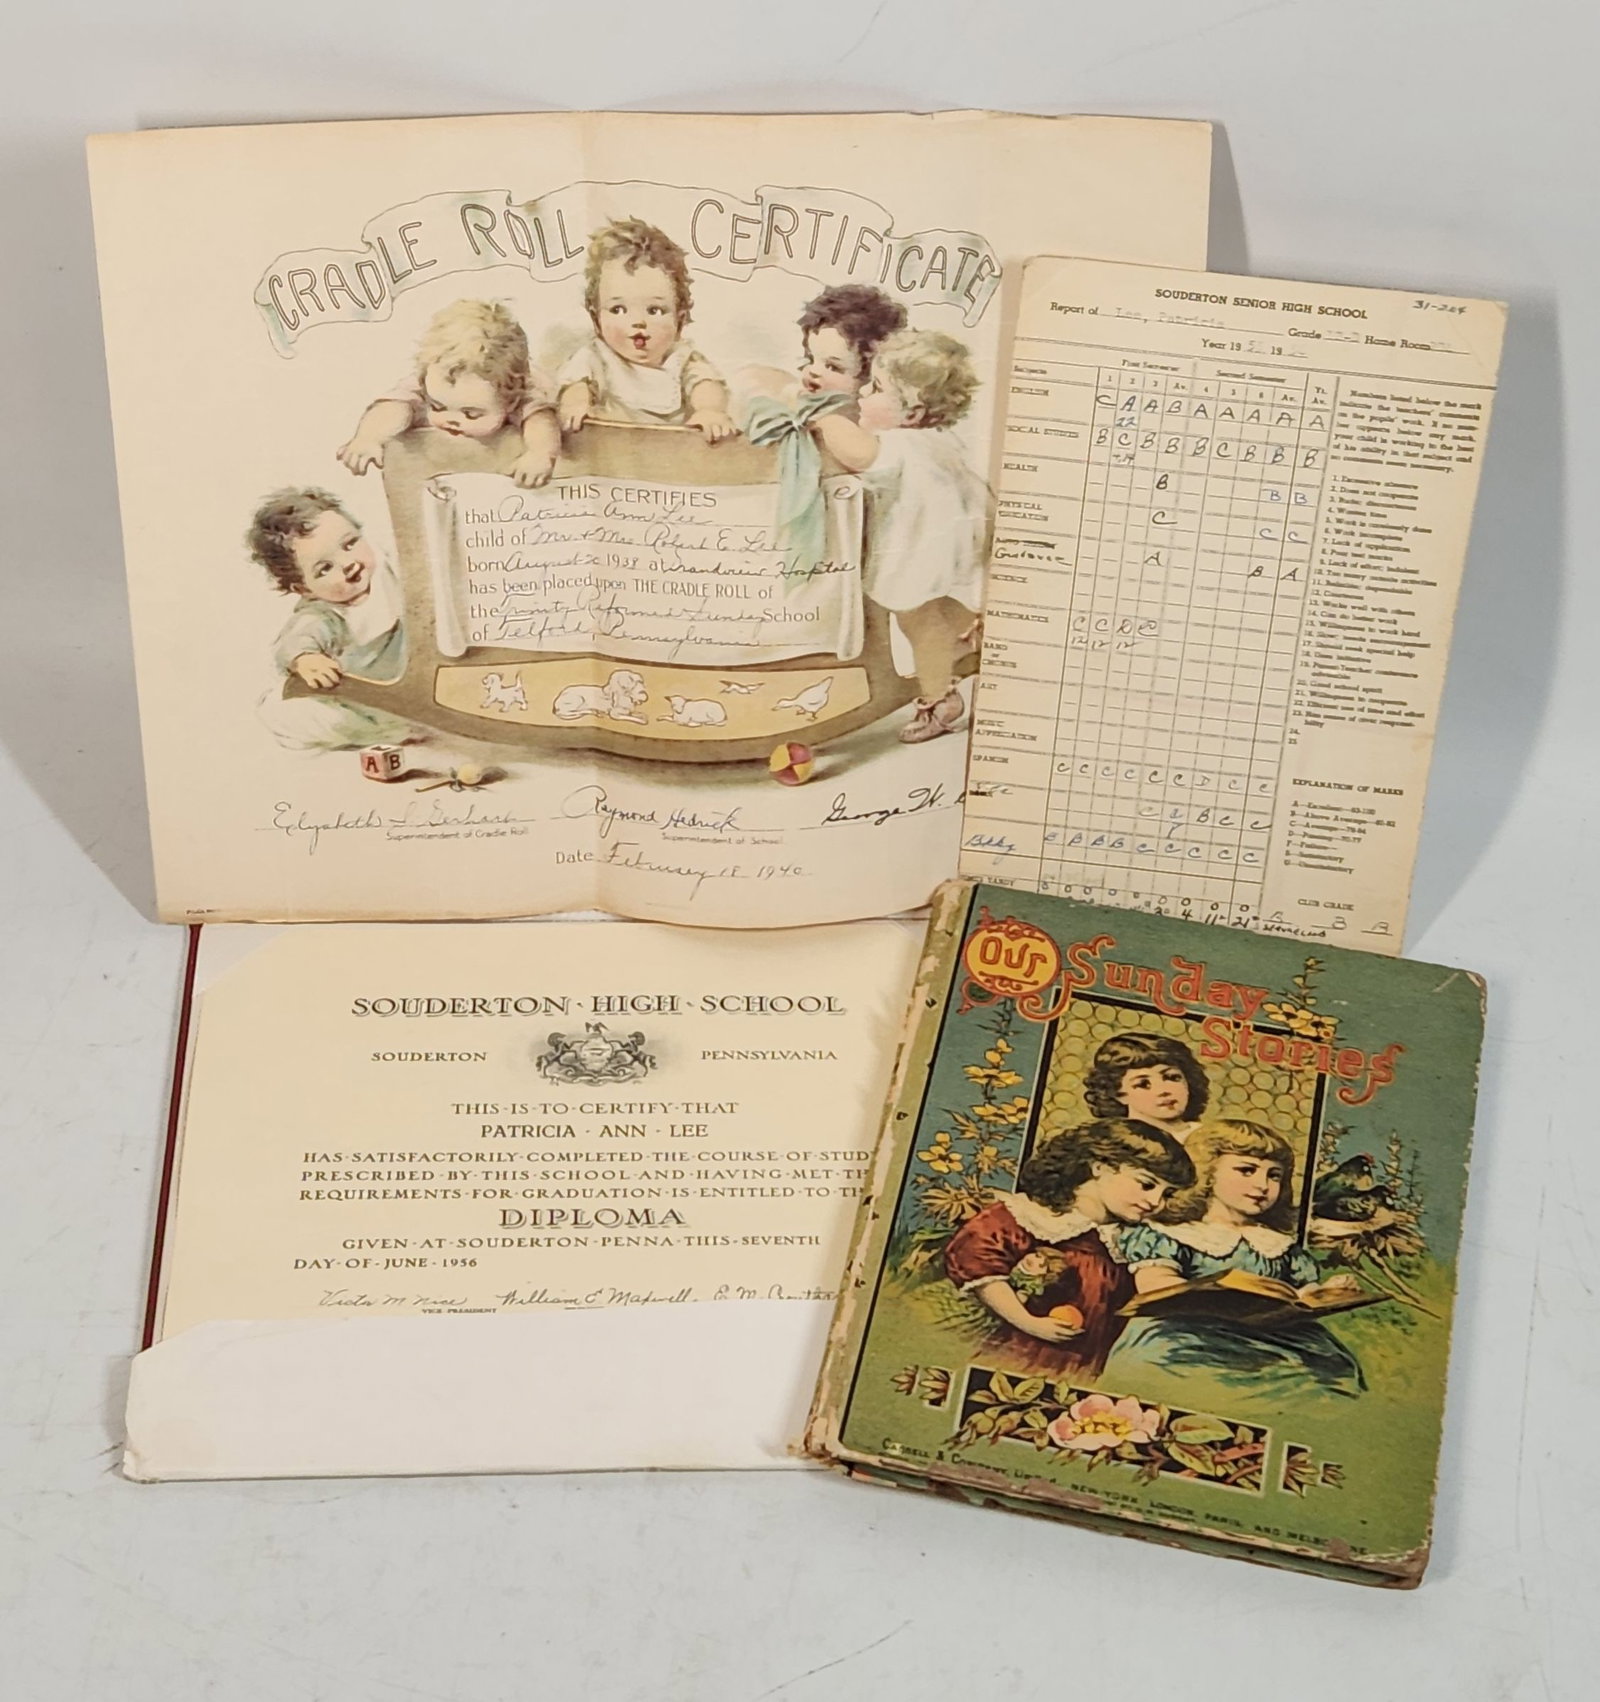 CRADLE ROLL CERTIFICATE
THIS CERTIFIES
that Patricia Ann Lee
child of Mr. & Mrs. Robert E. Lee
born August 20 1938 at Grandview Hospital
has been placed upon THE CRADLE ROLL of
the Trinity Reformed Sunday School
of Telford, Pennsylvania
A B
Elizabeth S. Gerhart Raymond Hedrick George W.
Superintendent of Cradle Roll Superintendent of School
Date February 18 1940
SOUDERTON SENIOR HIGH SCHOOL 31-204
Report of Lee, Patricia Grade Home Room
Year 19 19
Subjects First Semester Second Semester Yr.
1 2 3 Av. 4 5 6 Av. Av.
ENGLISH C A A B A A A A A
22
SOCIAL STUDIES B C B B B C B B B
HEALTH B B B
PHYSICAL EDUCATION C C C
Guidance A B A
SCIENCE
MATHEMATICS C C D C
12 12 12
BAND or CHORUS
ART
MUSIC APPRECIATION
SPANISH C C C C C C D C C
C B C C
Bkkg B B B B C C C C C
TARDY 0 0 0 0 0 0 0 0
4 11 21
Numbers listed below the mark
indicate the teachers' comments
on the pupils' work. If no number
appears below any mark,
your child is working to the best
of his ability in that subject and
no comments seem necessary.
1. Excessive absence
2. Does not cooperate
4. Wastes time
5. Work is carelessly done
6. Work incomplete
7. Lack of application
8. Poor test marks
12. Courteous
13. Works well with others
14. Can do better work
15. Willingness to work hard
16. Slow; needs encouragement
17. Should seek special help
18. Uses initiative
19. Parent-Teacher conference advisable
20. Good school spirit
21. Willingness to cooperate
22. Efficient use of time and effort
23. Has sense of civic responsibility
24.
25
EXPLANATION OF MARKS
A—Excellent—93-100
B—Above Average—85-92
C—Average—78-84
D—Passing—70-77
F—Failure
S—Satisfactory
U—Unsatisfactory
CLUB GRADE
B B B
SOUDERTON · HIGH · SCHOOL
SOUDERTON PENNSYLVANIA
THIS · IS · TO · CERTIFY · THAT
PATRICIA · ANN · LEE
HAS · SATISFACTORILY · COMPLETED · THE · COURSE · OF · STUD
PRESCRIBED · BY · THIS · SCHOOL · AND · HAVING · MET · TH
REQUIREMENTS · FOR · GRADUATION · IS · ENTITLED · TO · TH
DIPLOMA
GIVEN · AT · SOUDERTON · PENNA · THIS · SEVENTH
DAY · OF · JUNE · 1956
Victor M Nice William E Maxwell. E. M.
VICE PRESIDENT
Our Sunday
Stories
CASSELL & COMPANY, LIMITED, NEW YORK, LONDON, PARIS, AND MELBOURNE